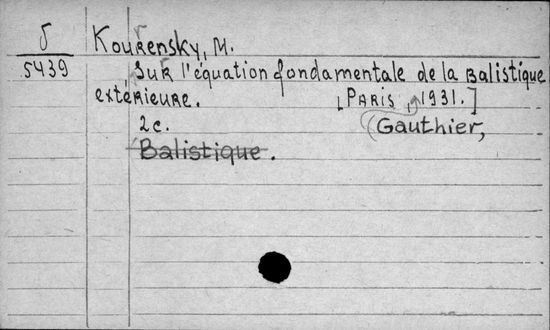 5 Kourensky, M.
5439 Sur l'équation fondamentale de la Balistique
extérieure. [Paris, 1931.]
2c. Gauthier,
Balistique.